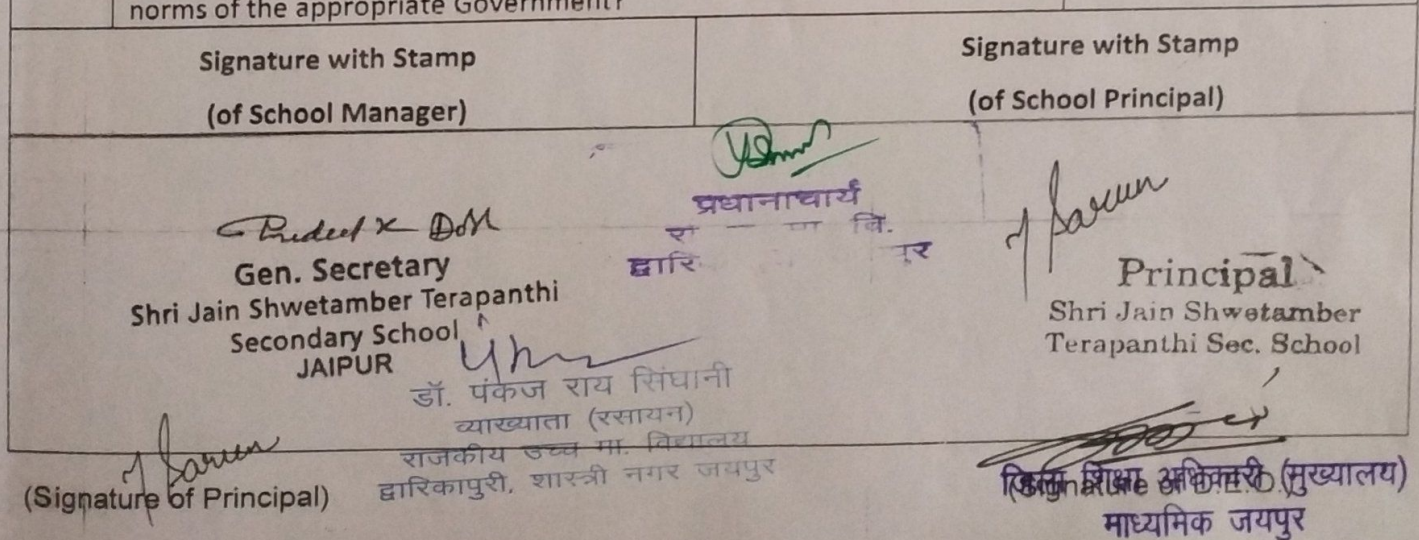 norms of the appropriate Government?
Signature with Stamp
(of School Manager)
Signature with Stamp
(of School Principal)
प्रधानाचार्य
वि.
द्वारि
पुर
Gen. Secretary
Shri Jain Shwetamber Terapanthi
Secondary School
JAIPUR
Principal
Shri Jain Shwetamber
Terapanthi Sec. School
डॉ. पंकज राय सिंघानी
व्याख्याता (रसायन)
राजकीय उच्च मा. विद्यालय
द्वारिकापुरी, शास्त्री नगर जयपुर
(Signature of Principal)
जिला शिक्षा अधिकारी (मुख्यालय)
माध्यमिक जयपुर